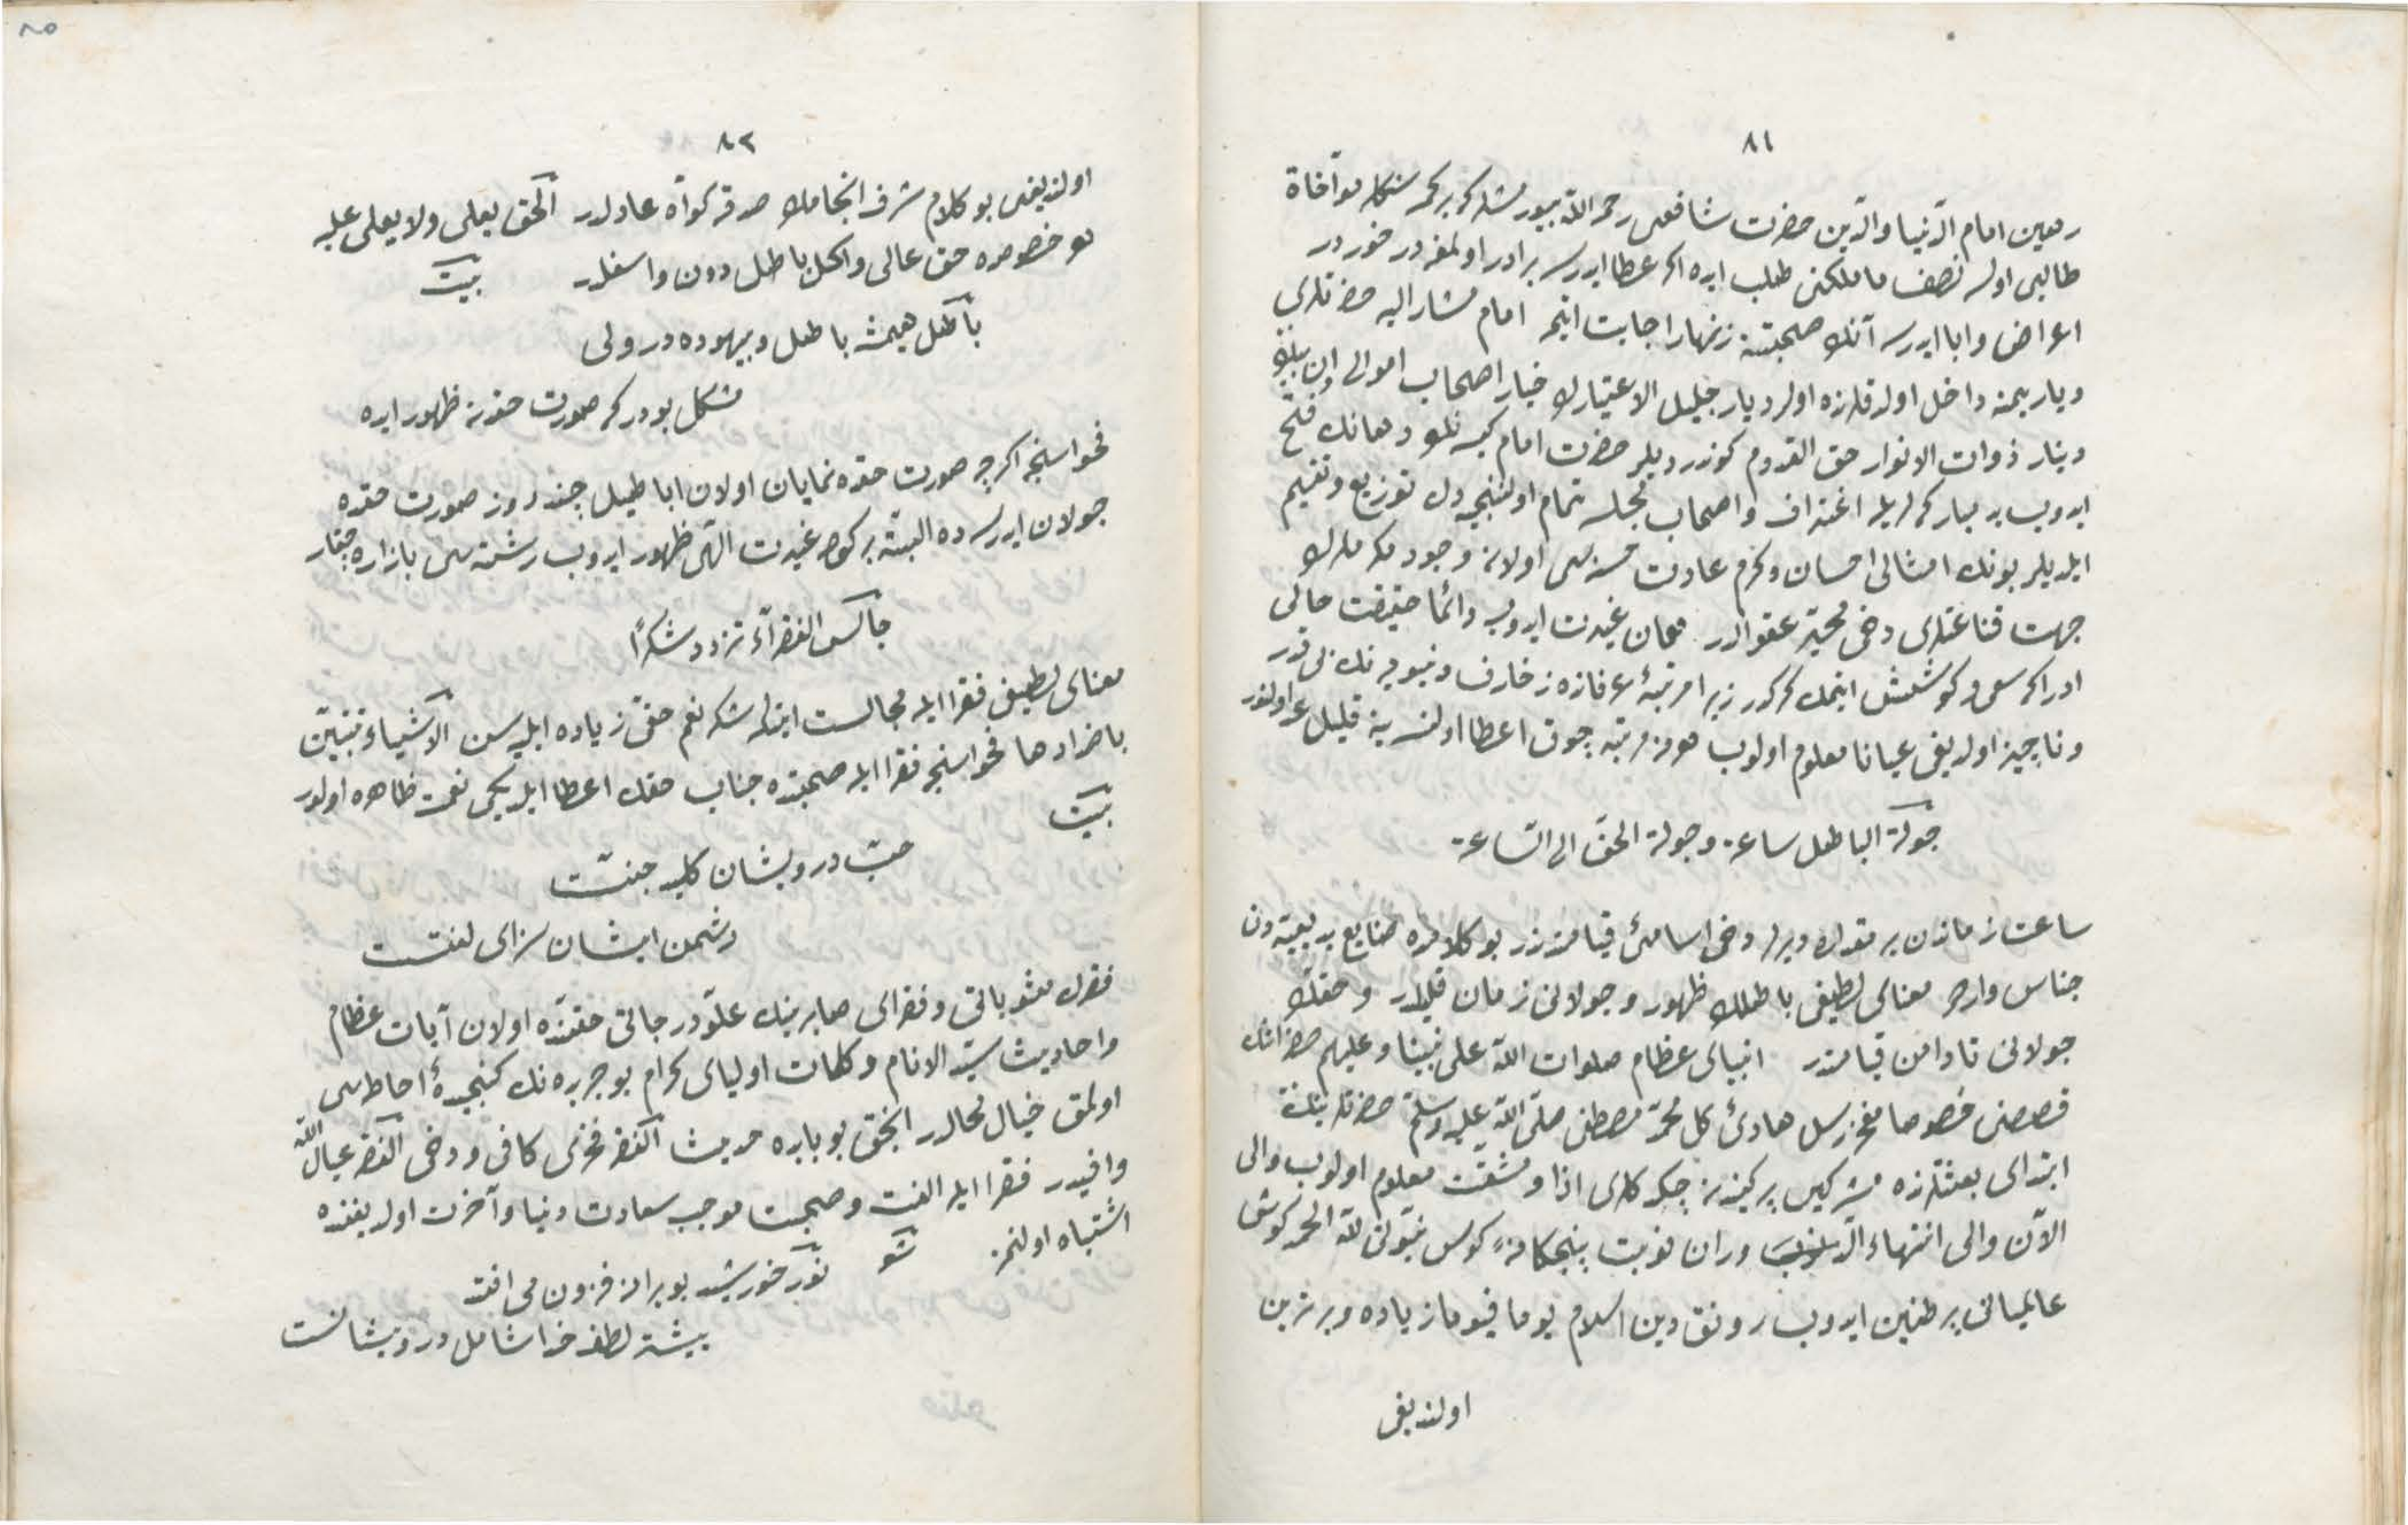 ٨١
رمعين امام الدّنيا والدّين حضرت شافعى رحمه اللّه بيورمشلر كه بر كمسه سنكله مؤاخاة
طالبى اولسه نصف ما ملكنى طلب ايده اكر عطا ايدرسه برادر اولمغه در خوردر
اعراض وابا ايدرسه آنك صحبتنه زنهار اجابت ايتمه امام مشار اليه حضرتلرى
ديار يمنه داخل اولدقلرنده اول ديار جليل الاعتبارك خيار اصحاب اموالى اون بيك
دينار ذوات الانوار حق القدوم كوندرديلر حضرت امام كيسه نك دهانك فتح
ايدوب يد مباركلريله اغتراف واصحاب مجلسه تمام اولنجيه دك توزيع وتقسيم
ايلديلر بونك امثالى احسان وكرم عادت حسنه سى اولان وجود مكرمك
جهت قناعتلرى دخى محيّر عقولدر همان غيرت ايدوب دائما حقيقت حالى
ادراكه سعى وكوشش ايتمك كركدر زيرا مرتبۀ عرفانده زخارف دنيويه نك بى قدر
وناچيز اولديغى عيانا معلوم اولوب هر نه مرتبه چوق اعطا اولنسه ينه قليل عد اولنور
جولة الباطل ساعة وجولة الحقّ الى السّاعة
ساعت زماندن بر مقداره ديرلر دخى اسامئ قيامتدندر بو كلامده صنايع بديعيّه دن
جناس واردر معناى لطيفى باطلك ظهور وجولانى زمان قليلدر وحقك
جولانى تا دامن قيامتدر انبياى عظام صلوات اللّه على نبيّنا وعليهم حضراتنك
قصصنى خصوصا مفخر رسل هادئ كل محمّد مصطفى صلّى اللّه عليه وسلّم حضرتلرينك
ابتداى بعثتلرنده مشركين پر كيندن چكدكلرى اذا ومشقّت معلوم اولوب والى
الآن والى انتهاء الدّوران نوبت پنجكانۀ كوس نبوّتى للّه الحمد كوش
عالميانى پر طنين ايدوب رونق دين اسلام يوما فيوما زياده وبرترين
اولنديغى
٨٢
اولنديغى بو كلام شرف انجامك صدقنه كواه عادلدر الحق يعلى ولا يعلى عليه
بو خصوصده حق عالى واكمل باطل دون واسفلدر بيت
باطل هميشه باطل وبيهوده در ولى
مشكل بودر كه صورت حقدن ظهور ايده
فحواسنجه اكرچه صورت حقده نمايان اولان اباطيل چند روز صورت حقده
جولان ايدرسه ده البتّه بر كون غيرت الهى ظهور ايدوب رشته سى بازاره چيقار
جالس الفقرآء تزدد شكرًا
معناى لطيفى فقرا ايله مجالست ايت كه شكر نعم حقى زياده ايليه سن الاشياء تتبيّن
باضدادها فحواسنجه فقرا ايله صحبتده جناب حقك اعطا ايلديكى نعمت ظاهره اولور
بيت
حبّ درويشان كليد جنتست
دشمن ايشان سزاى لعنتست
فقرك مثوباتى وفقراى صابرينك علوّ درجاتى حقنده اولان آيات عظام
واحاديث سيّد الانام وكلمات اولياى كرام بو جريده نك كنجيدۀ احاطه سى
اولمق خيال محالدر انجق بو بابده حديث الفقر فخرى كافى ودخى الفقر عيال اللّه
وافيدر فقرا ايله الفت وصحبت موجب سعادت دنيا وآخرت اولديغنده
اشتباه اولنمز شعر نور خورشيد بويران فزون مى افتد
بيشتر لطف خدا شامل درويشانست